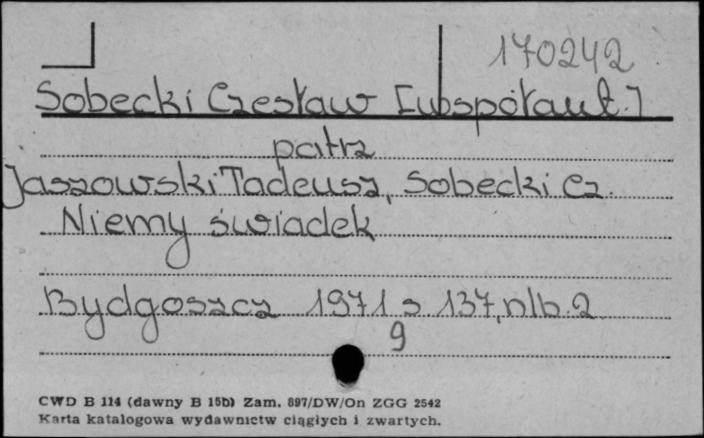 170242
Sobecki Czesław [współaut.]
patrz
Jaszowski Tadeusz, Sobecki Cz.
Niemy świadek
Bydgoszcz 1971 s 137, nlb. 2
9
CWD B 114 (dawny B 15b) Zam. 897/DW/On ZGG 2542
Karta katalogowa wydawnictw ciągłych i zwartych.